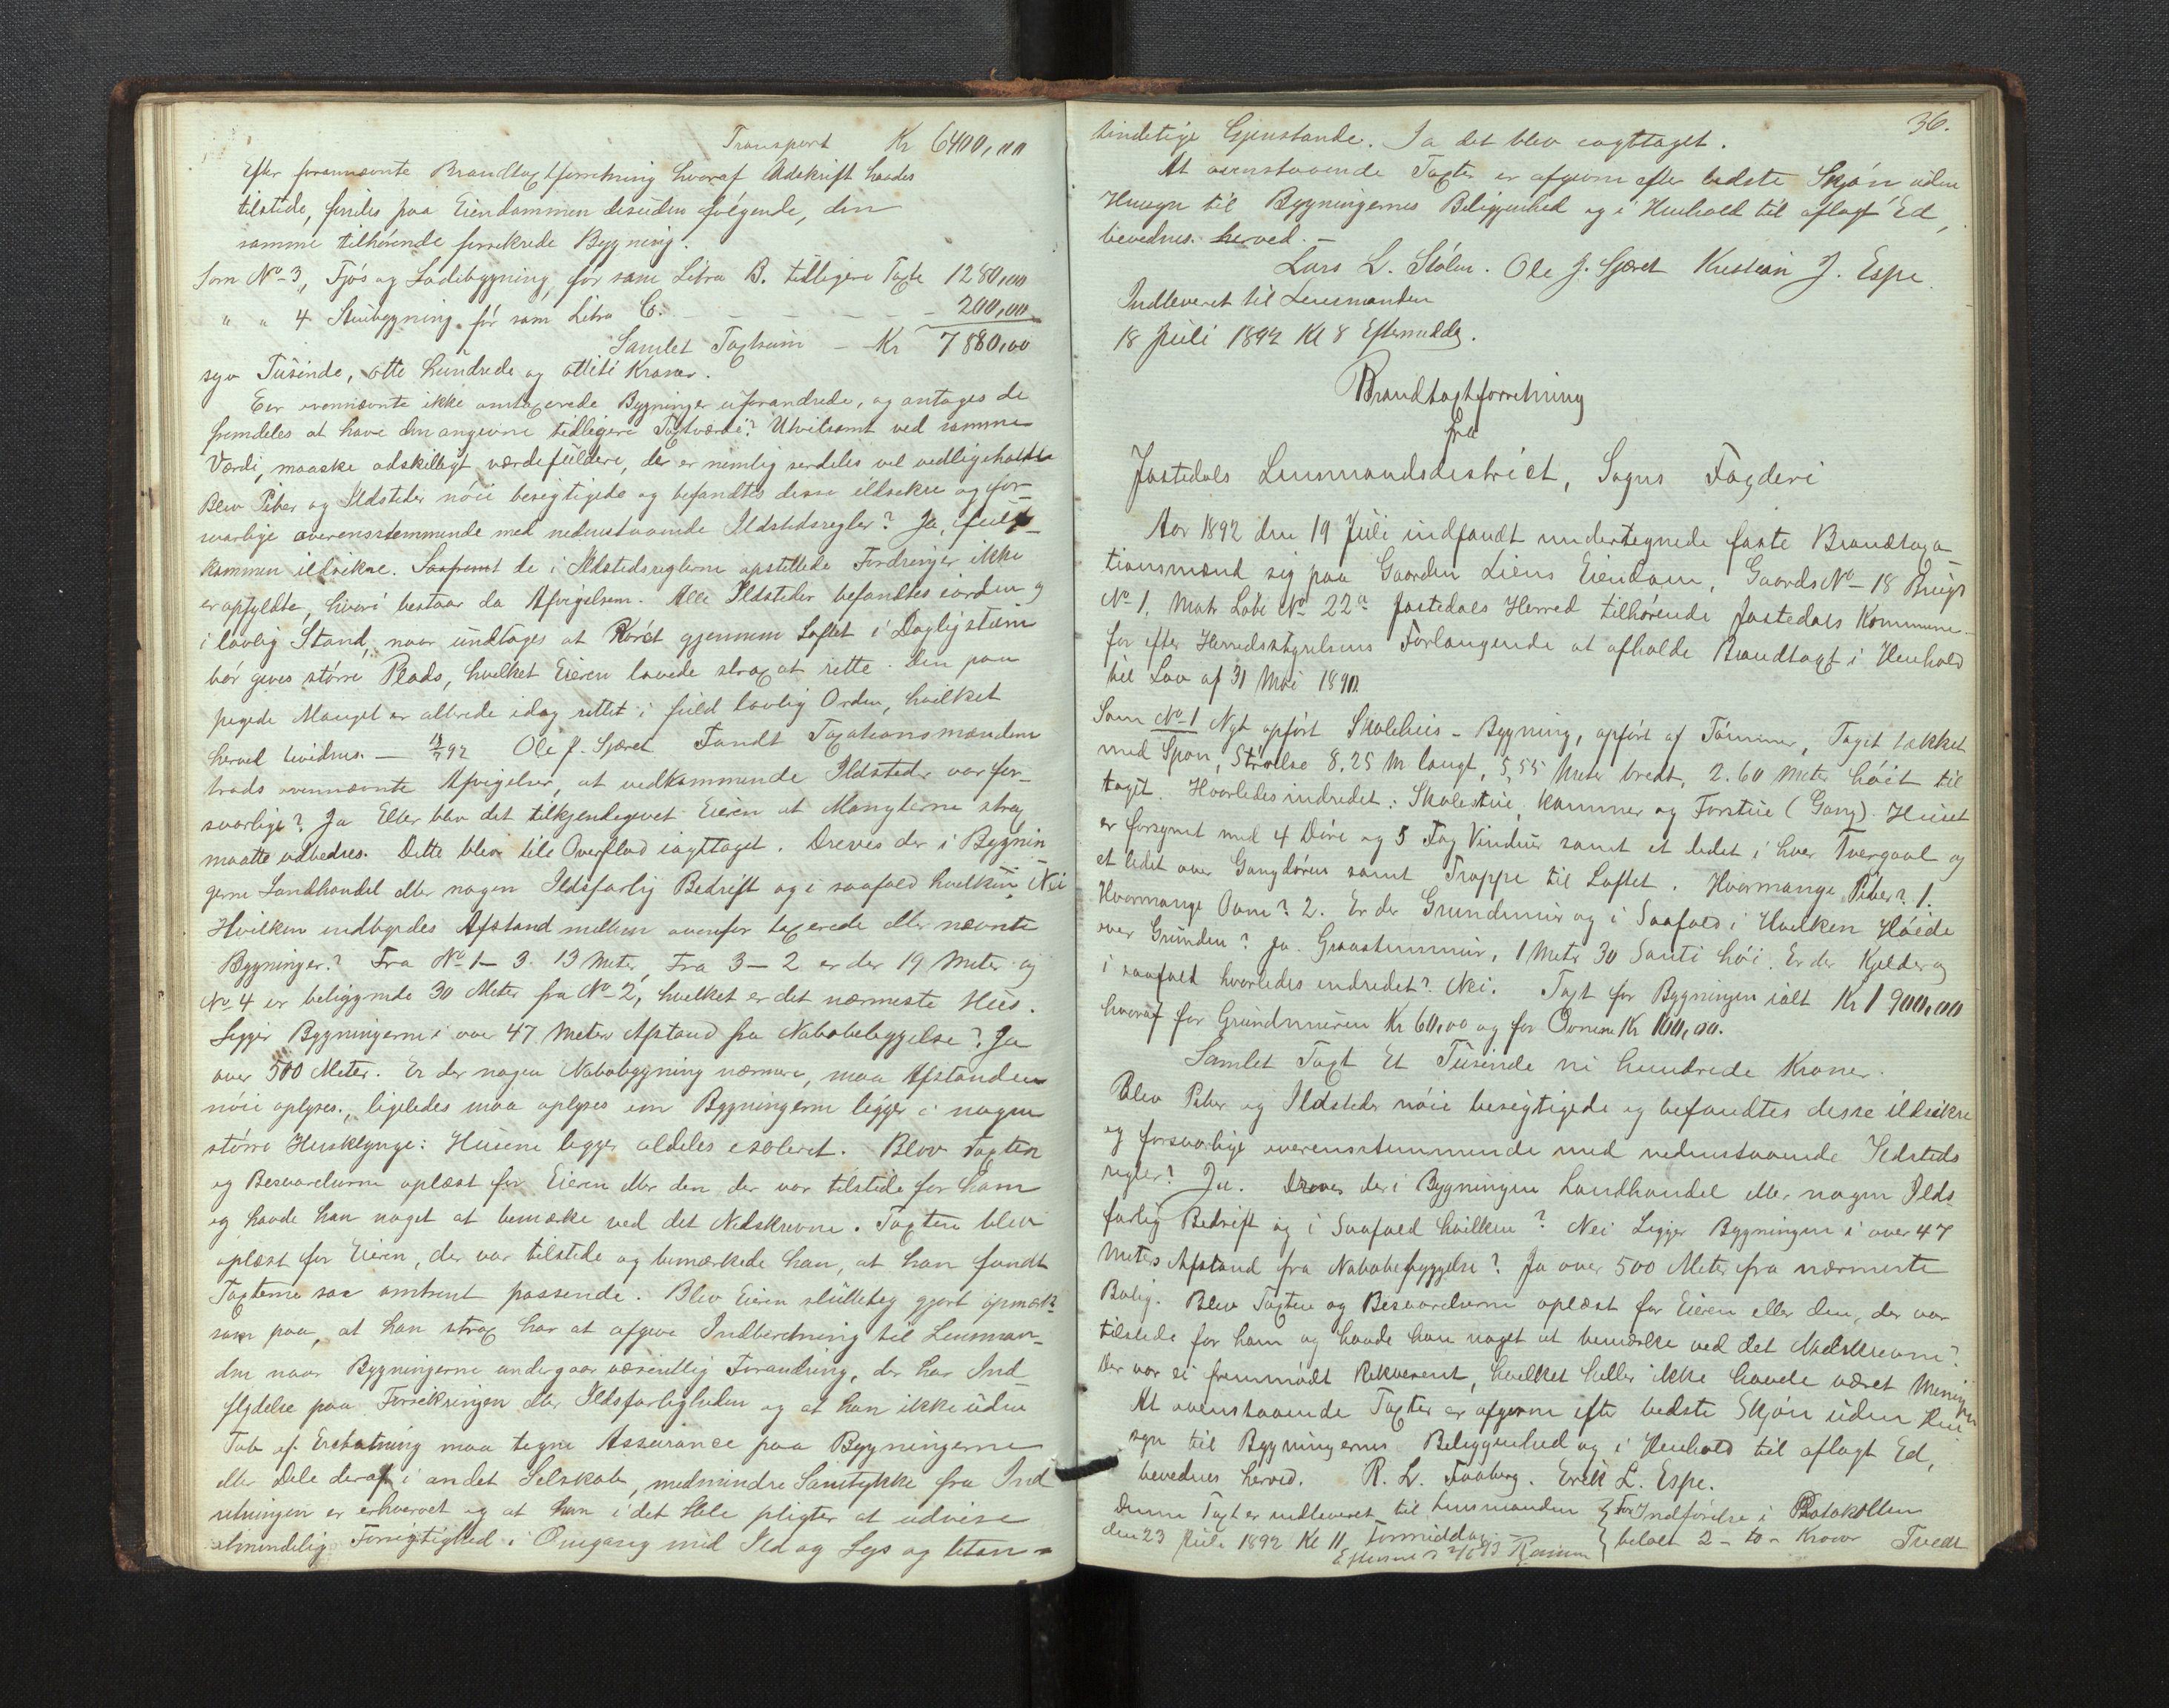 Transport Kr 6400,00
Efter forannævnte Brandtaxtforretning hvoraf Udskrift havdes
tilstede, findes paa Eiendommen desuden følgende, den
samme tilhørende forsikrede Bygning.
Som No 3, Fjøs og Ladebygning, før som Litra B. tidligere Taxt 1280,00
" " 4 Stuebygning før som Litra C. — — — — — 200,00
Samlet Taxtsum — Kr 7880,00
syv Tusinde, otte hundrede og ottiti Kroner.
Eer ovennævnte ikke omtaxerede Bygninger uforandrede, og antages de
fremdeles at have den angivne tidligere Taxtværdi? Utvilsomt ved samme
Værdi, maaske adskilligt værdefuldere, der er nemlig særdeles vel vedligeholdte
Blev Piber og Ildsteder nøie besigtigede og befandtes disse ildsikre og for-
svarlige overensstemmende med nedenstaaende Ildstedsregler? Ja, fuld-
kommen ildsikre. Saafremt de i Ildstedsreglerne opstillede Fordringer ikke
er opfyldte, hvori bestaar da Afvigelsen. Alle Ildsteder befandtes iorden og
i lovlig Stand, naar undtages at Røret gjennem Loftet i Dagligstuen
bør gives større Plads, hvilket Eieren lovede strax at rette. Den paa
pegede Mangel er allerede idag rettet i fuld lovlig Orden, hvilket
herved bevidnes. — 18/7 92 Ole J. Sjæret Fandt Taxationsmændene
trods ovennævnte Afvigelser, at vedkommende Ildsteder var for-
svarlige? Ja Eller blev det tilkjendegivet Eieren at Manglerne strax
maatte udbedres. Dette blev til Overflod iagttaget. Dreves der i Bygnin
gerne Landhandel eller nogen Ildsfarlig Bedrift og i saafald hvilken, Nei
Hvilken indbyrdes Afstand mellem ovenfor taxerede eller nævnte
Bygninger? Fra No 1 – 3. 13 Meter, Fra 3 – 2 er der 19 Meter og
No 4 er beliggende 30 Meter fra No 2, hvilket er det nærmeste Hus.
Ligger Bygningerne i over 47 Meters Afstand fra Nabobebyggelse? Ja
over 500 Meter. Er der nogen Nabobygning nærmere, maa Afstanden
nøie oplyses., ligeledes maa oplyses om Bygningerne ligger i nogen
større Husklynge: Husene ligger aldeles isoleret. Blev Taxten
og Besvarelserne oplæst for Eieren eller den der var tilstede for ham
og havde han noget at bemærke ved det Nedskrevne. Taxten blev
oplæst for Eieren, der var tilstede og bemærkede han, at han fandt
Taxterne saa omtrent passende. Blev Eieren slutteligt gjort opmærk-
som paa, at han strax har at afgive Indberetning til Lensman-
den naar Bygningerne undergaar væsentlig Forandring, der har Ind
flydelse paa Forsikringen eller Ildsfarligheden og at han ikke uden
Tab af Erstatning maa tegne Assurance paa Bygningerne
eller Dele deraf i andet Selskab, medmindre Samtykke fra Ind
retningen er erhvervet og at han i det Hele pligter at udvise
almindelig Forsigtighed i Omgang med Ild og Lys og let an-
36.
tændelige Gjenstande. Ja det blev iagttaget.
At ovenstaaende Taxter er afgivne efter bedste Skjøn uden
Hensyn til Bygningernes Beliggenhed og i Henhold til aflagt Ed,
bevidnes herved. —
Lars L. Stølen. Ole J. Sjæret Kristian J. Espe
Indleveret til Lensmanden
18 Juli 1892 Kl 8 Eftermiddag.
Brandtaxtforretning
fra
Jostedals Lensmandsdistrict, Sogns Fogderi
Aar 1892 den 19 Juli indfandt undertegnede faste Brandtaxa-
tionsmænd sig paa Gaarden Liens Eiendom, Gaards No 18 Brugs
No 1, Matr Løbe No 22a Jostedals Herred tilhørende Jostedals Kommune
for efter Herredsstyrelsens Forlangende at afholde Brandtaxt i Henhold
til Lov af 31 Mai 1890.
Som No 1 Nyt opført Skolehus-Bygning, opført af Tømmer, Taget tækket
med Spon, Størrelse 8.25 M langt, 5,55 Meter bredt, 2.60 Meter høit til
taget. Hvorledes indredet: Skolestue, Kammer og Forstue (Gang). Huset
er forsynet med 4 Døre og 5 Fag Vinduer samt et lidet i hver Tvergavl og
et lidet over Gangdøren samt Trappe til Loftet. Hvormange Piber? 1.
Hvormange Ovne? 2. Er der Grundmur og i Saafald i Hvilken Høide
over Grunden? Ja. Graastensmur, 1 Meter 30 Santi høi. Er der Kjelder og
i saafald hvorledes indredet? Nei. Taxt for Bygningen ialt Kr 1 900,00
hvoraf for Grundmuren Kr 60,00 og for Ovnene Kr 100,00.
Samlet Taxt Et Tusinde ni hundrede Kroner.
Blev Piber og Ildsteder nøie besigtigede og befandtes disse ildsikre
og forsvarlige overensstemmende med nedenstaaende Ildsteds
regler? Ja. Dreves der i Bygningen Landhandel eller nogen Ilds-
farlig Bedrift og i Saafald hvilken? Nei Ligger Bygningen i over 47
Meters Afstand fra Nabobebyggelse? Ja over 500 Meter fra nærmeste
Bolig. Blev Taxten og Besvarelserne oplæst for Eieren eller den, der var
tilstede for ham og havde han noget at bemærke ved det Nedskrevne?
Der var ei fremmødt Rekvirent, hvilket heller ikke havde været Meningen
At ovenstaaende Taxter er afgivne efter bedste Skjøn uden Hen
syn til Bygningernes Beliggenhed og i Henhold til aflagt Ed,
bevidnes herved. R. L. Faaberg. Erik L. Espe.
Denne Taxt er indleveret til Lensmanden
den 23 Juli 1892 Kl 11 Formiddag.
For Indførelse i Protokollen
betalt 2 – to – Kroner Tvedt